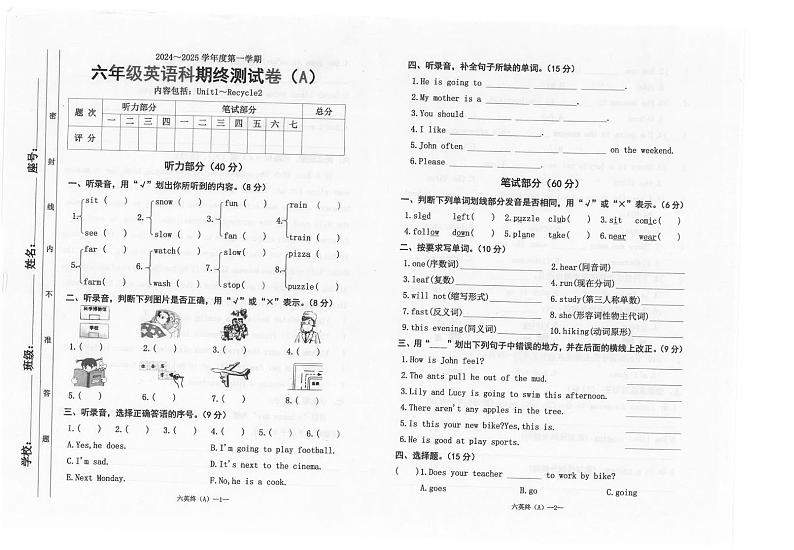 2024～2025学年度第一学期
六年级英语科期终测试卷（A）
内容包括：Unit1～Recycle2
题 次 听力部分 笔试部分 总分
一 二 三 四 一 二 三 四 五 六 七
评 分
密 封 线 内 不 准 答 题
学校： 班级： 姓名： 座号：
听力部分（40分）
一、听录音，用“√”划出你所听到的内容。（8分）
1. sit （ ） 2. snow（ ） 3. fun （ ） 4. rain （ ）
see （ ） slow（ ） fan （ ） train（ ）
5. far （ ） 6. watch（ ） 7. slow（ ） 8. pizza （ ）
farm（ ） wash（ ） stop（ ） puzzle（ ）
二、听录音，判断下列图片是否正确，用“√”或“×”表示。（8分）
科学博物馆
学校
1.（ ） 2.（ ） 3.（ ） 4.（ ）
5.（ ） 6.（ ） 7.（ ） 8.（ ）
三、听录音，选择正确答语的序号。（9分）
1.（ ） 2.（ ） 3.（ ） 4.（ ） 5.（ ） 6.（ ）
A.Yes,he does. B.I'm going to play football.
C.I'm sad. D.It's next to the cinema.
E.Next Monday. F.No,he is a cook.
六英终（A）—1—
四、听录音，补全句子所缺的单词。（15分）
1.He is going to ______ ______ ______.
2.My mother is a ______ ______.
3.You should ______ ______ ______.
4.I like ______ ______.
5.John often ______ ______ ______ on the weekend.
6.Please ______ ______.
笔试部分（60分）
一、判断下列单词划线部分发音是否相同，用“√”或“×”表示。（6分）
1.sled left（ ） 2.puzzle club（ ） 3.sit comic（ ）
4.follow down（ ） 5.plane take（ ） 6.near wear（ ）
二、按要求写单词。（10分）
1.one(序数词)______ 2.hear(同音词)______
3.leaf(复数)______ 4.run(现在分词)______
5.will not(缩写形式)______ 6.study(第三人称单数)______
7.fast(反义词)______ 8.she(形容词性物主代词)______
9.this evening(同义词)______ 10.hiking(动词原形)______
三、用“____”划出下列句子中错误的地方，并在后面的横线上改正。（9分）
1.How is John feel? ______
2.The ants pull he out of the mud. ______
3.Lily and Lucy is going to swim this afternoon. ______
4.There aren't any apples in the tree. ______
5.Is this your new bike?Yes,this is. ______
6.He is good at play sports. ______
四、选择题。（15分）
（ ）1.Does your teacher ______ to work by bike?
A.goes B.go C.going
六英终（A）—2—